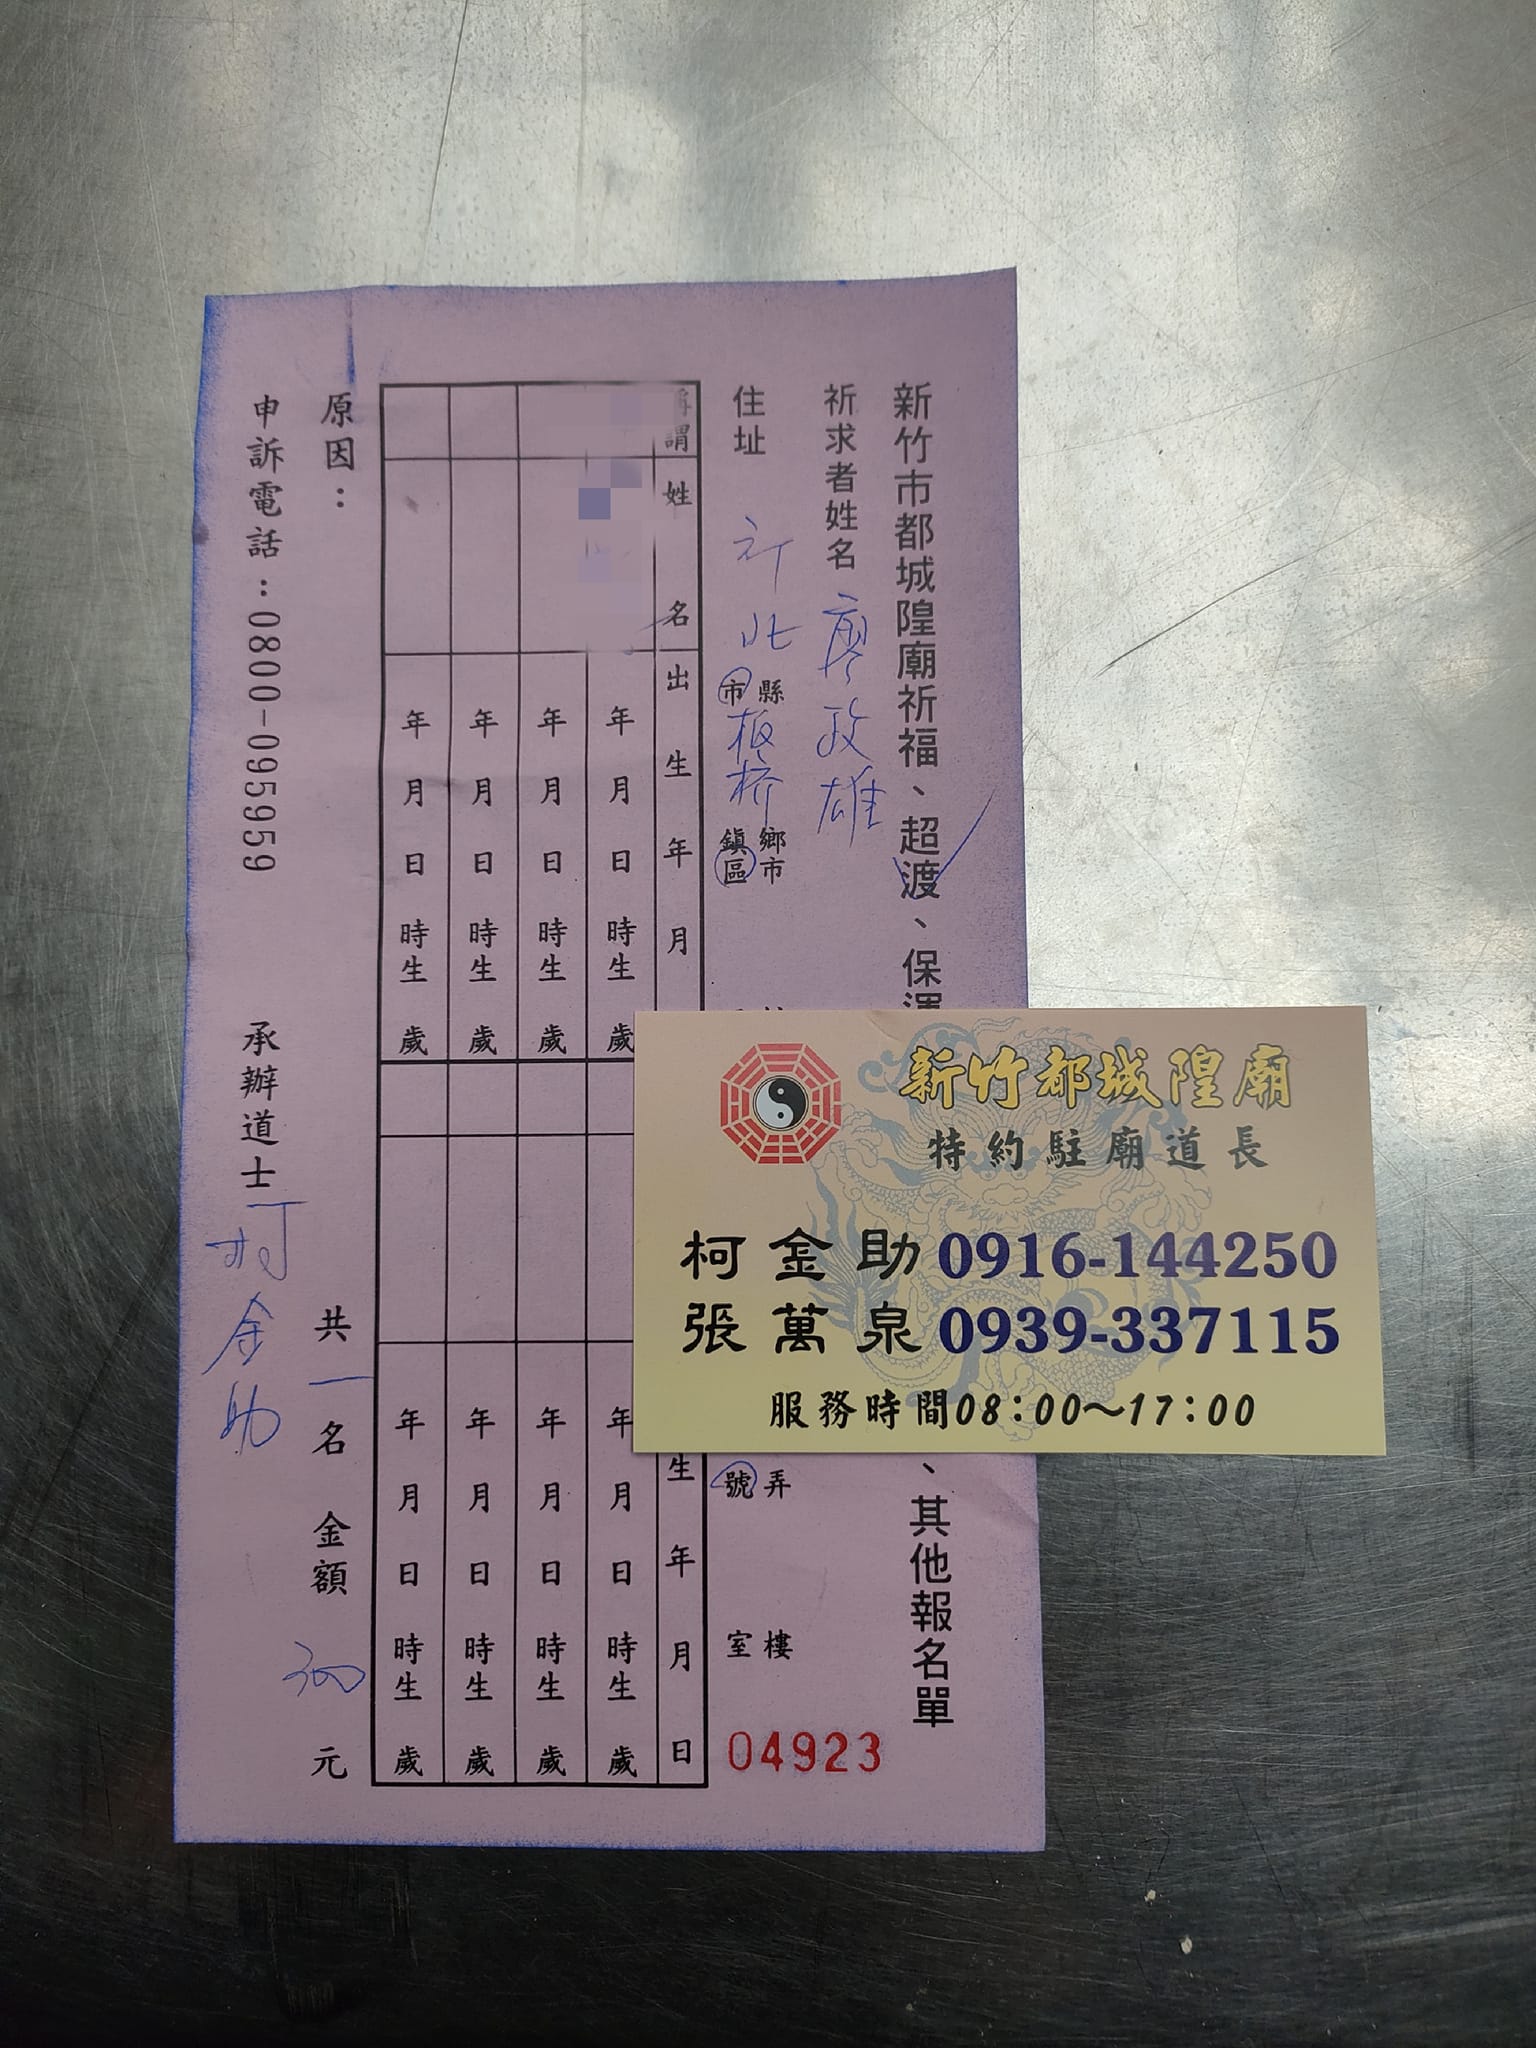 新竹市都城隍廟祈福、超渡、保運
、其他報名單
祈求者姓名 廖政雄
住址 新北 縣市 板桥 鄉鎮市區
弄號
樓室
04923
稱謂 姓名 出生年月
生年月日
年月日時生 歲
年月日時生 歲
年月日時生 歲
年月日時生 歲
年月日時生 歲
年月日時生 歲
年月日時生 歲
年月日時生 歲
原因： 共一名 金額 300 元
申訴電話：0800-095959 承辦道士 柯金助
新竹都城隍廟
特約駐廟道長
柯金助 0916-144250
張萬泉 0939-337115
服務時間08：00～17：00